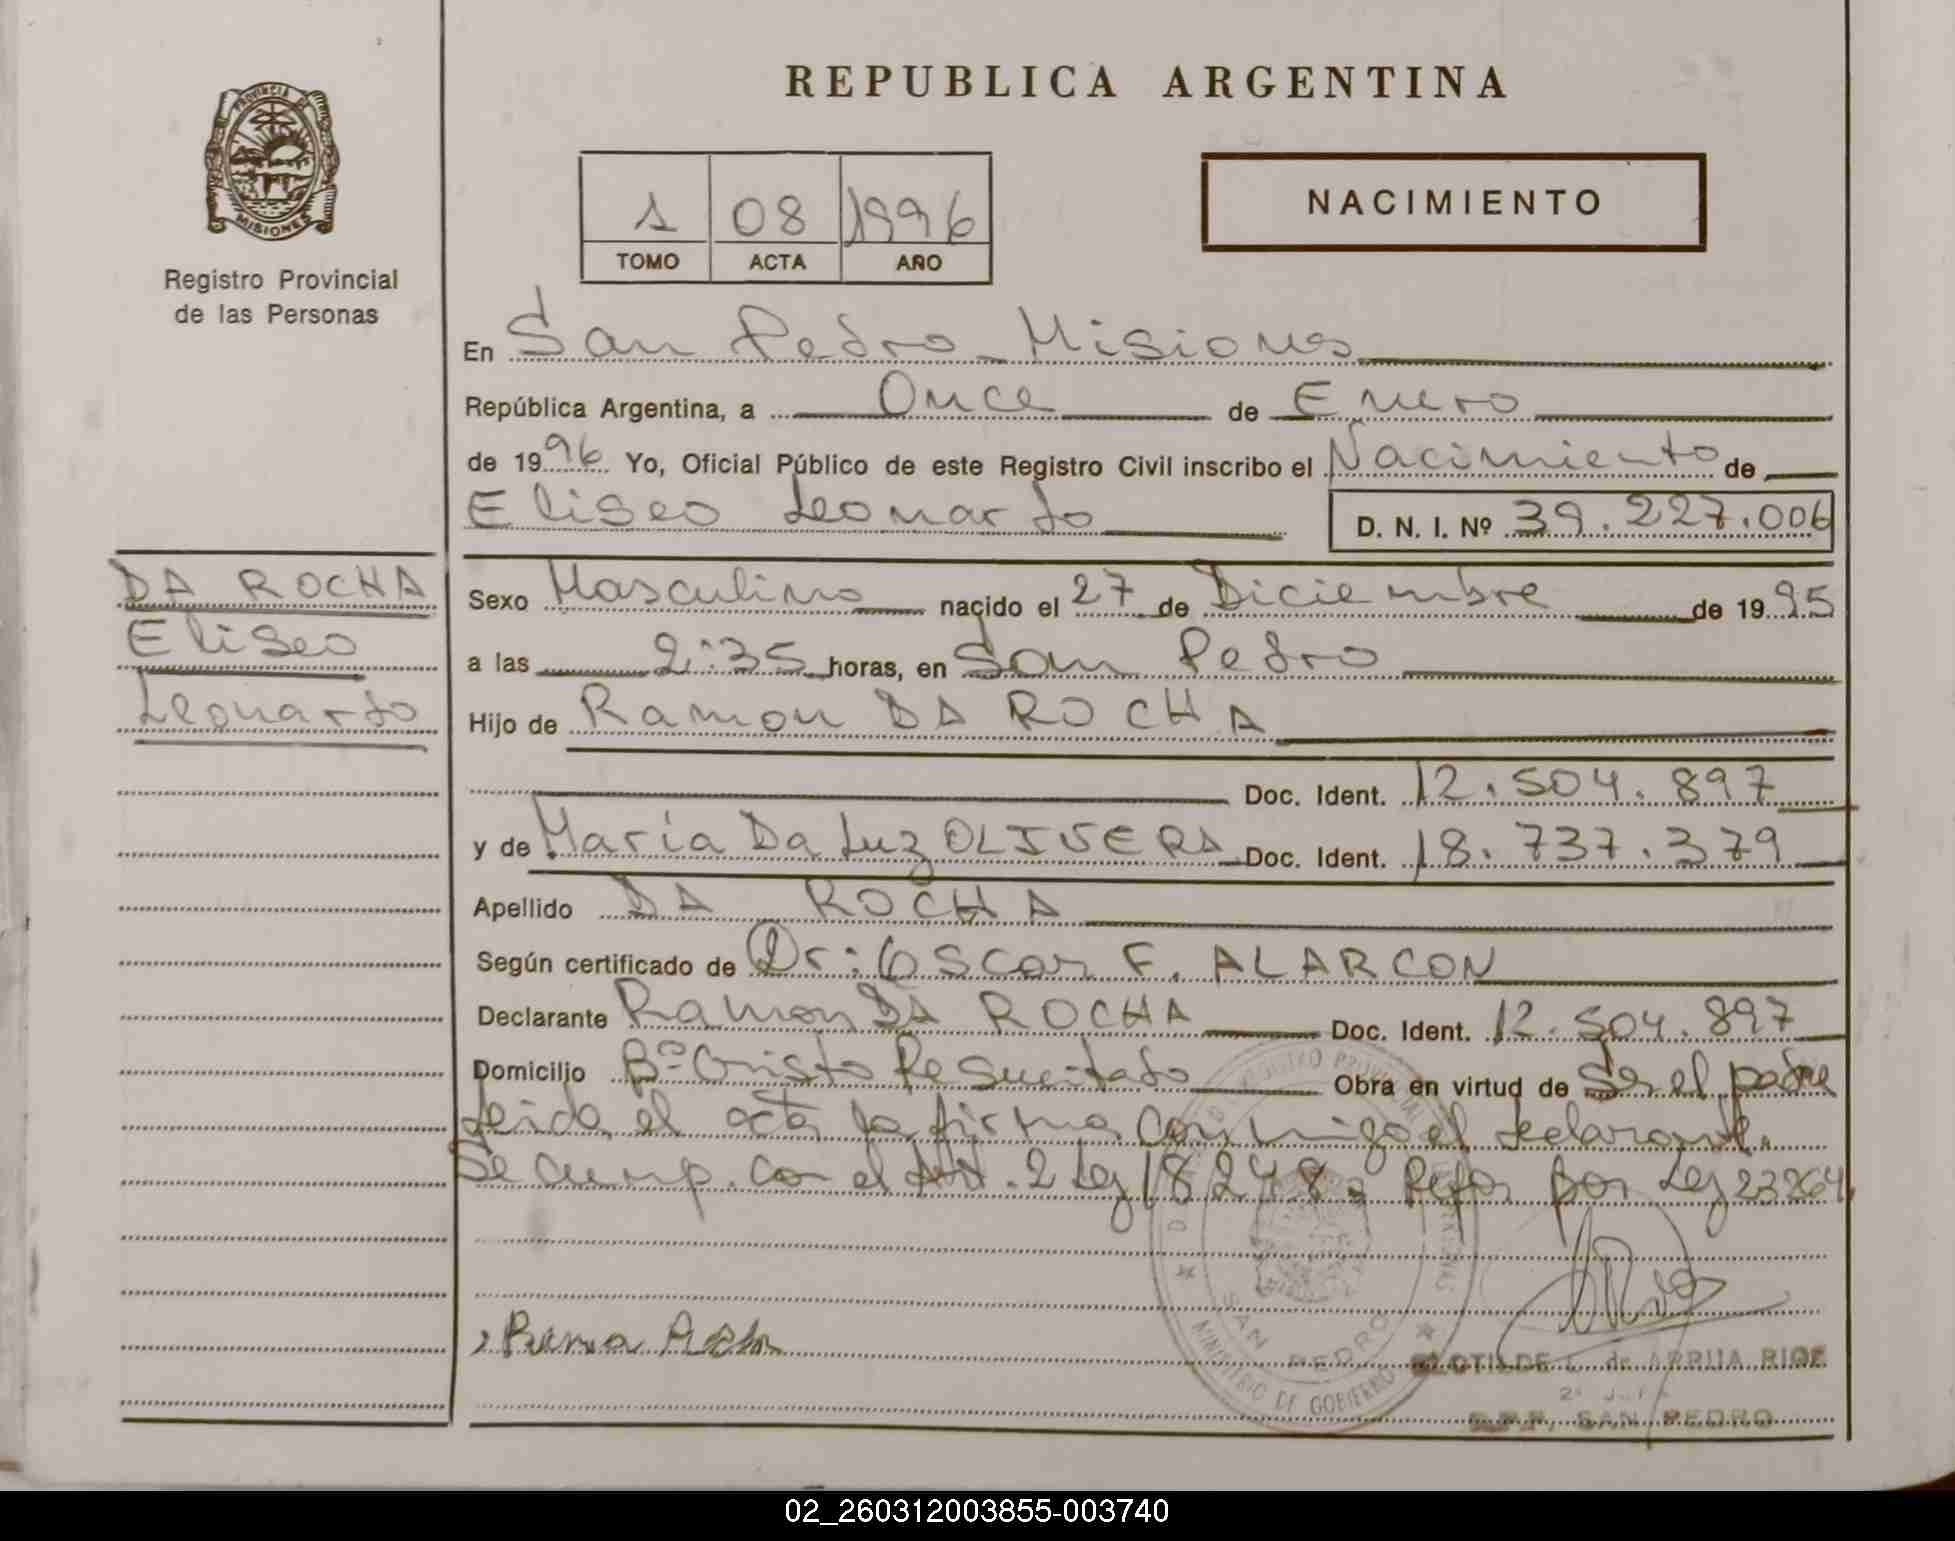 REPUBLICA ARGENTINA
PROVINCIA DE
MISIONES
Registro Provincial
de las Personas
1 08 1996
TOMO ACTA AÑO
NACIMIENTO
En San Pedro Misiones
República Argentina, a Once de Enero
de 1996 Yo, Oficial Público de este Registro Civil inscribo el Nacimiento de
Eliseo Leonardo
D. N. I. Nº 39.227.006
DA ROCHA
Eliseo
Leonardo
Sexo Masculino nacido el 27 de Diciembre de 1995
a las 2:35 horas, en San Pedro
Hijo de Ramon DA ROCHA
Doc. Ident. 12.504.897
y de María Da Luz OLIVERA Doc. Ident. 18.737.379
Apellido DA ROCHA
Según certificado de Dr: Oscar F. ALARCON
Declarante Ramon DA ROCHA Doc. Ident. 12.504.897
Domicilio Bº Cristo Resucitado Obra en virtud de Ser el padre
Leida el acta la firma conmigo el declarante.
Se cump. con el Art. 2 Ley 18248 Refor por Ley 23264
SAN PEDRO
MINISTERIO DE GOBIERNO
CLOTILDE de ARRUA RIOS
SAN PEDRO
02_260312003855-003740